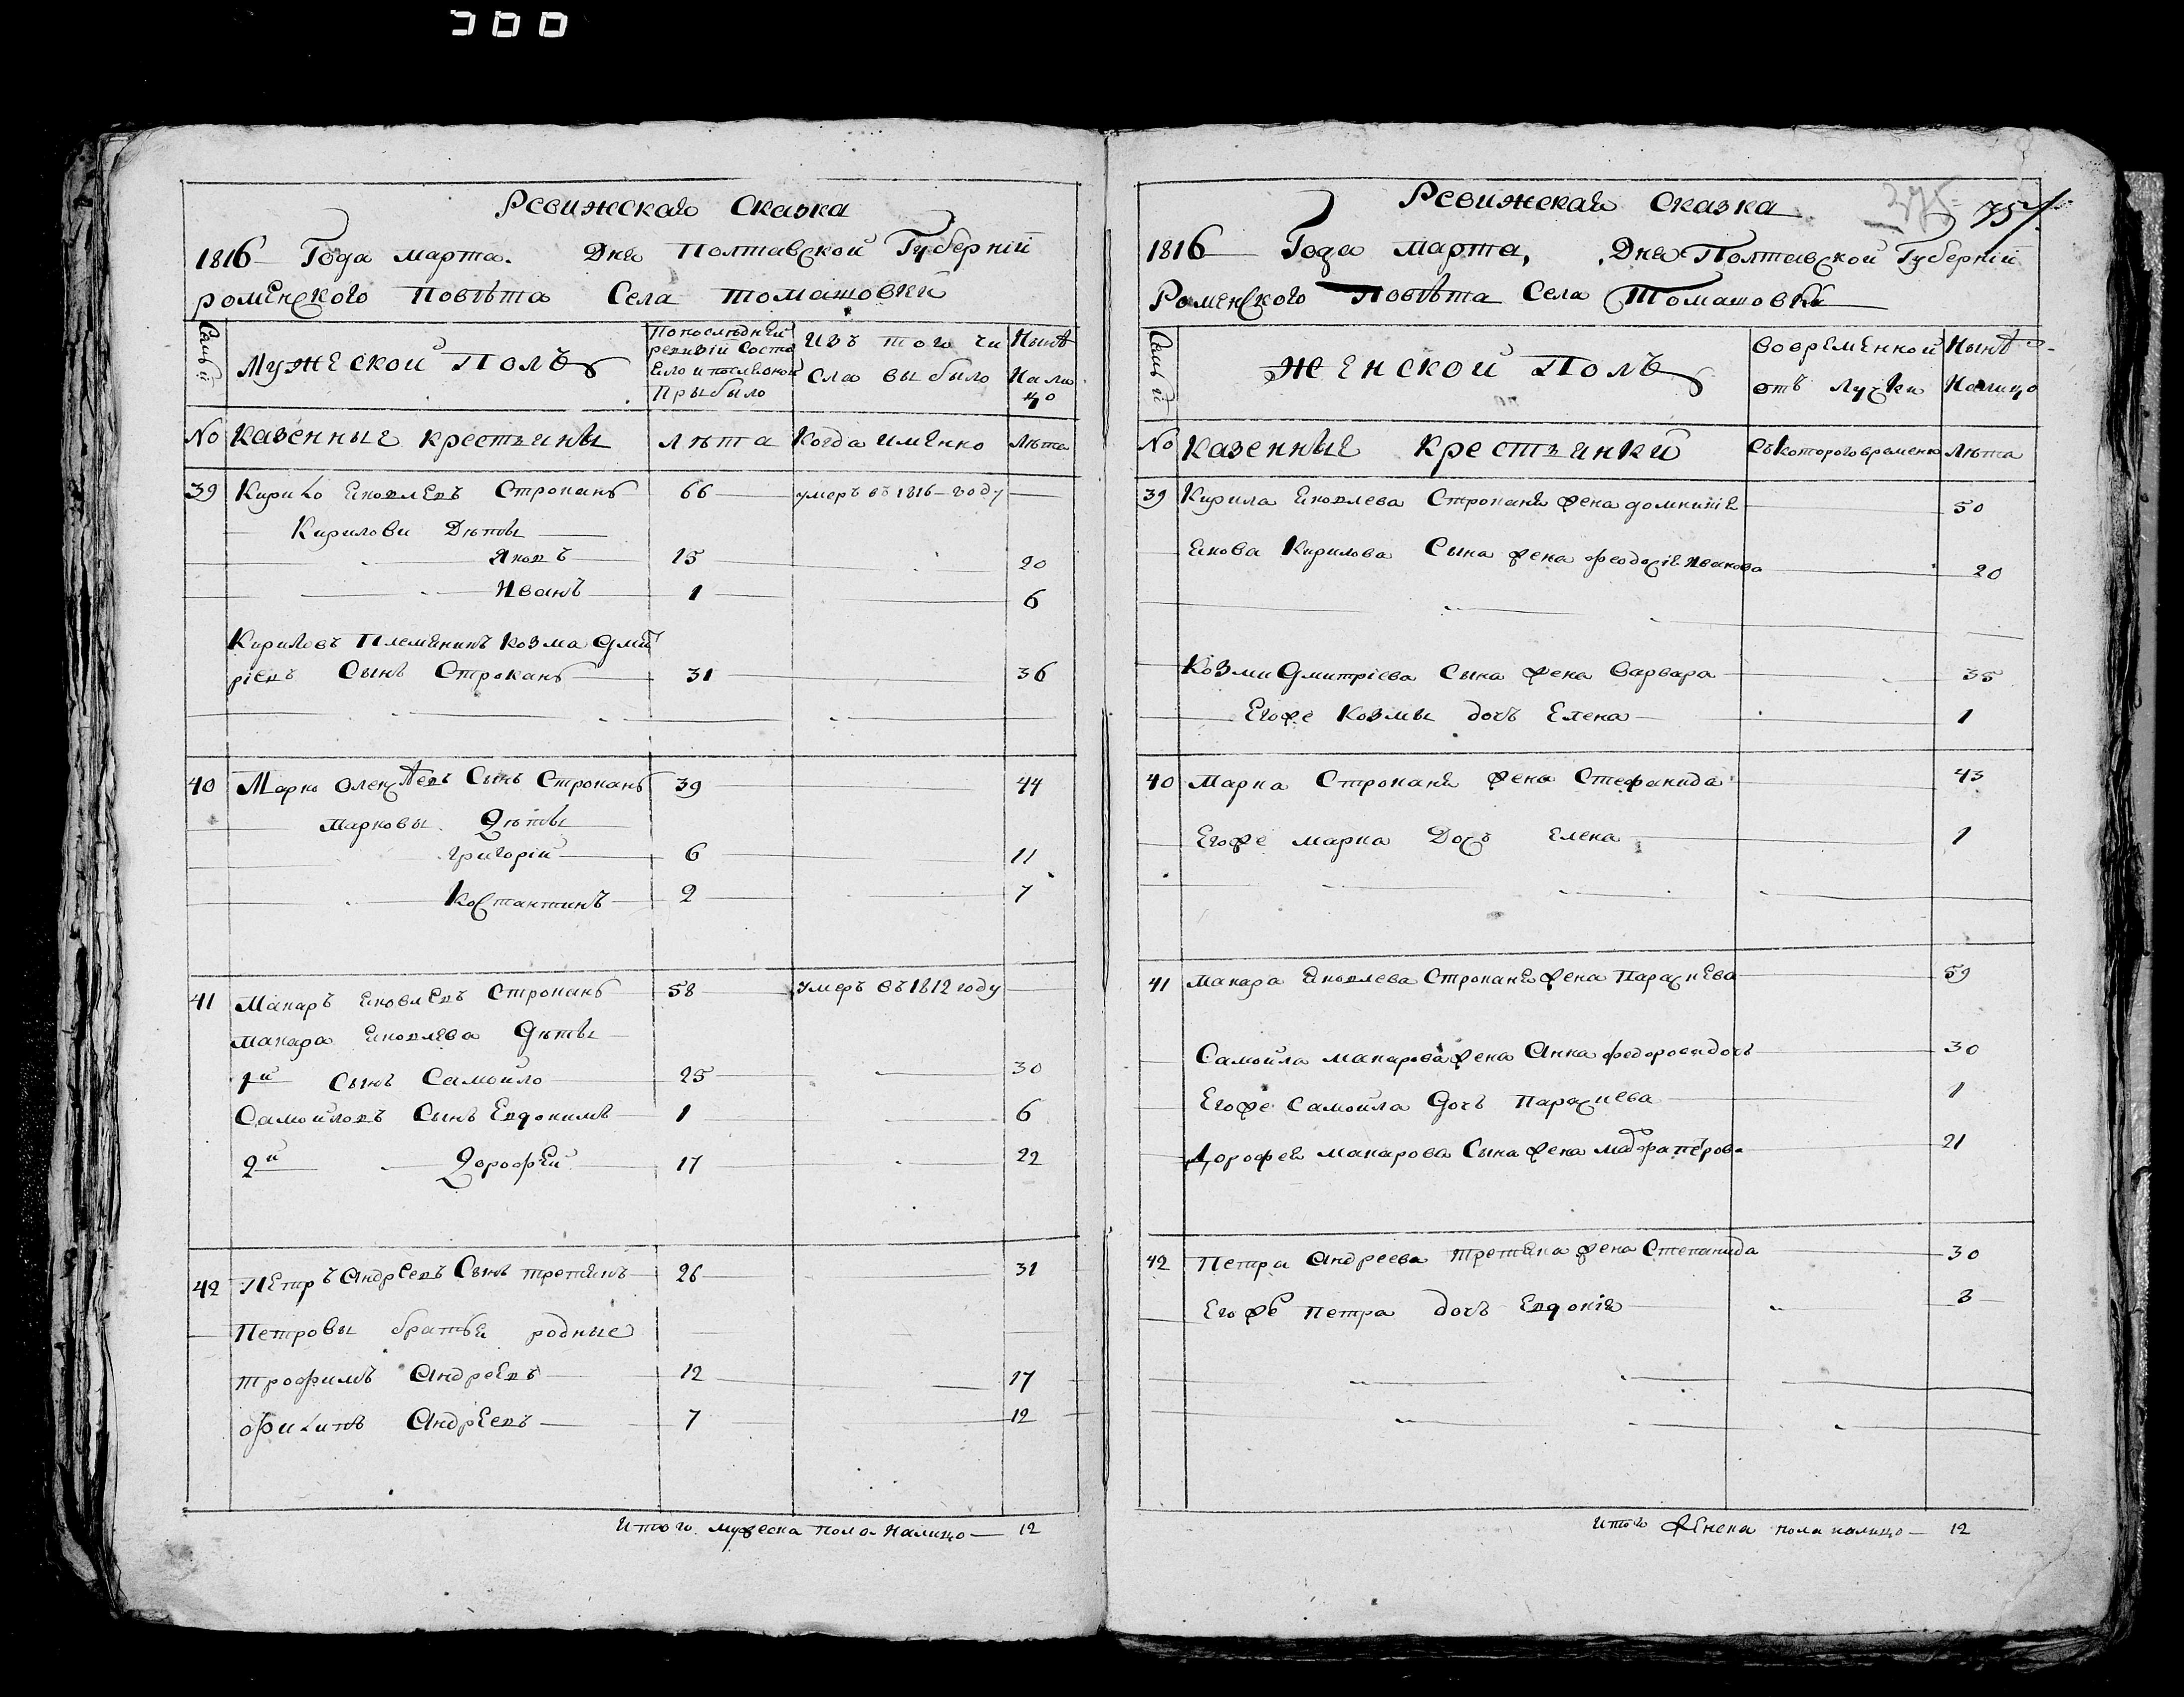 300
Ревижская Сказка
1816 Года марта. Дня Полтавской Губерній
роменского Повѣта Села Томашовки
Семьи
Мужеской Полъ
По последней ревизій Состояло и после оной Прыбыло
Изъ того числа выбыло
Нынѣ На лицо
No Казенные крестьяны
лѣта
Когда именно
Лѣта
39 Кирило Яковлевъ Строкань 66 умеръ въ 1816 году
Кирилови Дѣти
Яковъ 15 20
Иванъ 1 6
Кириловъ Племянникъ Козма Дмит
ріевъ Сынъ Строкань 31 36
40 Марко Олексѣевъ Сынъ Строкань 39 44
Марковы Дѣты
Григорій 6 11
Костантинъ 2 7
41 Макаръ Яковлевъ Строкань 58 умеръ въ 1812 году
Макара Яковлева Дѣты
1й Сынъ Самойло 25 30
Самойловъ Сынъ Евдокимъ 1 6
2й Дорофей 17 22
42 Петръ Андреевъ Сынъ Третякъ 26 31
Петровы братья родные
Трофимъ Андреевъ 12 17
Филипъ Андреевъ 7 12
Итого мужеска пола Налицо 12
Ревижская Сказка
375 75
1816 Года Марта, Дня Полтавской Губерній
Роменского Повѣта Села Томашовки
Семьи
Женской Полъ
Во временной отъ лучки
Нынѣ Налицо
No Казенные Крестьянки
Съ которого времени
Лѣта
39 Кирила Яковлева Строканя жена домникия 50
Якова Кирилова Сына жена феодосія Иванова 20
Козми Дмитріева Сына жена Варвара 35
Его же Козмы дочь Елена 1
40 Марка Строканя жена Стефанида 43
Его же марка Дочь Елена 1
41 Макара Яковлева Строканя жена Параскева 59
Самойла макарова жена Анна федорова дочь 30
Его же Самойла Дочь Параскева 1
Дорофея макарова Сына жена петрова 21
42 Петра Андреева Третяка жена Степанида 30
Его же петра дочь Евдокия 3
Итого женска пола налицо 12